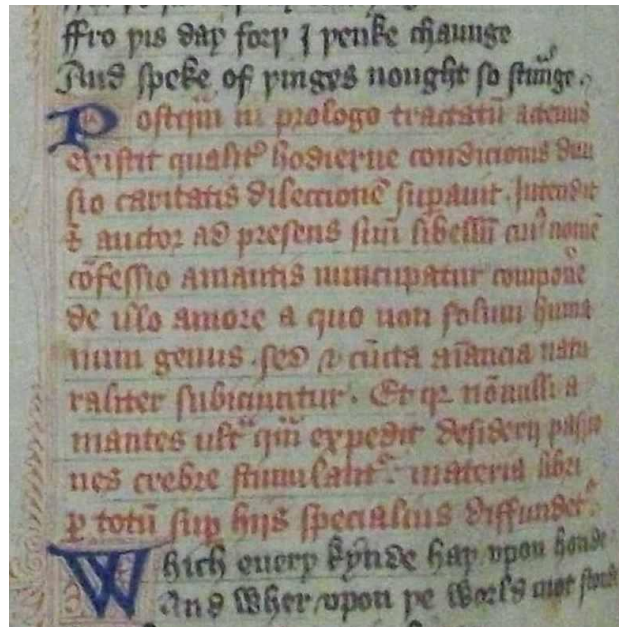 ffro þis day forþ I þenke chaunge
And speke of þinges nought so straunge.
Postqᵃm in prologo tractatū actenus
existit qualit hodierne condicionis diui
sio caritatis dileccionē supauit. Intendit
auctor ad presens suū libellū cuiꝰ nomē
cōfessio amantis nuncupatur componere
de illo amore a quo non solum huma
num genus. sed ⁊ cūcta aīancia natu
raliter subiciuntur. Et qꝛ nōnulli a
mantes ultᵃ qᵃm expedit desiderij passio
nes crebre stimulantᵘʳ materia libri
ꝑ totū suꝑ hijs specialius diffundetᵘʳ
Which euery kynde haþ vpon honde
And Wher vpon þe World mot stonde